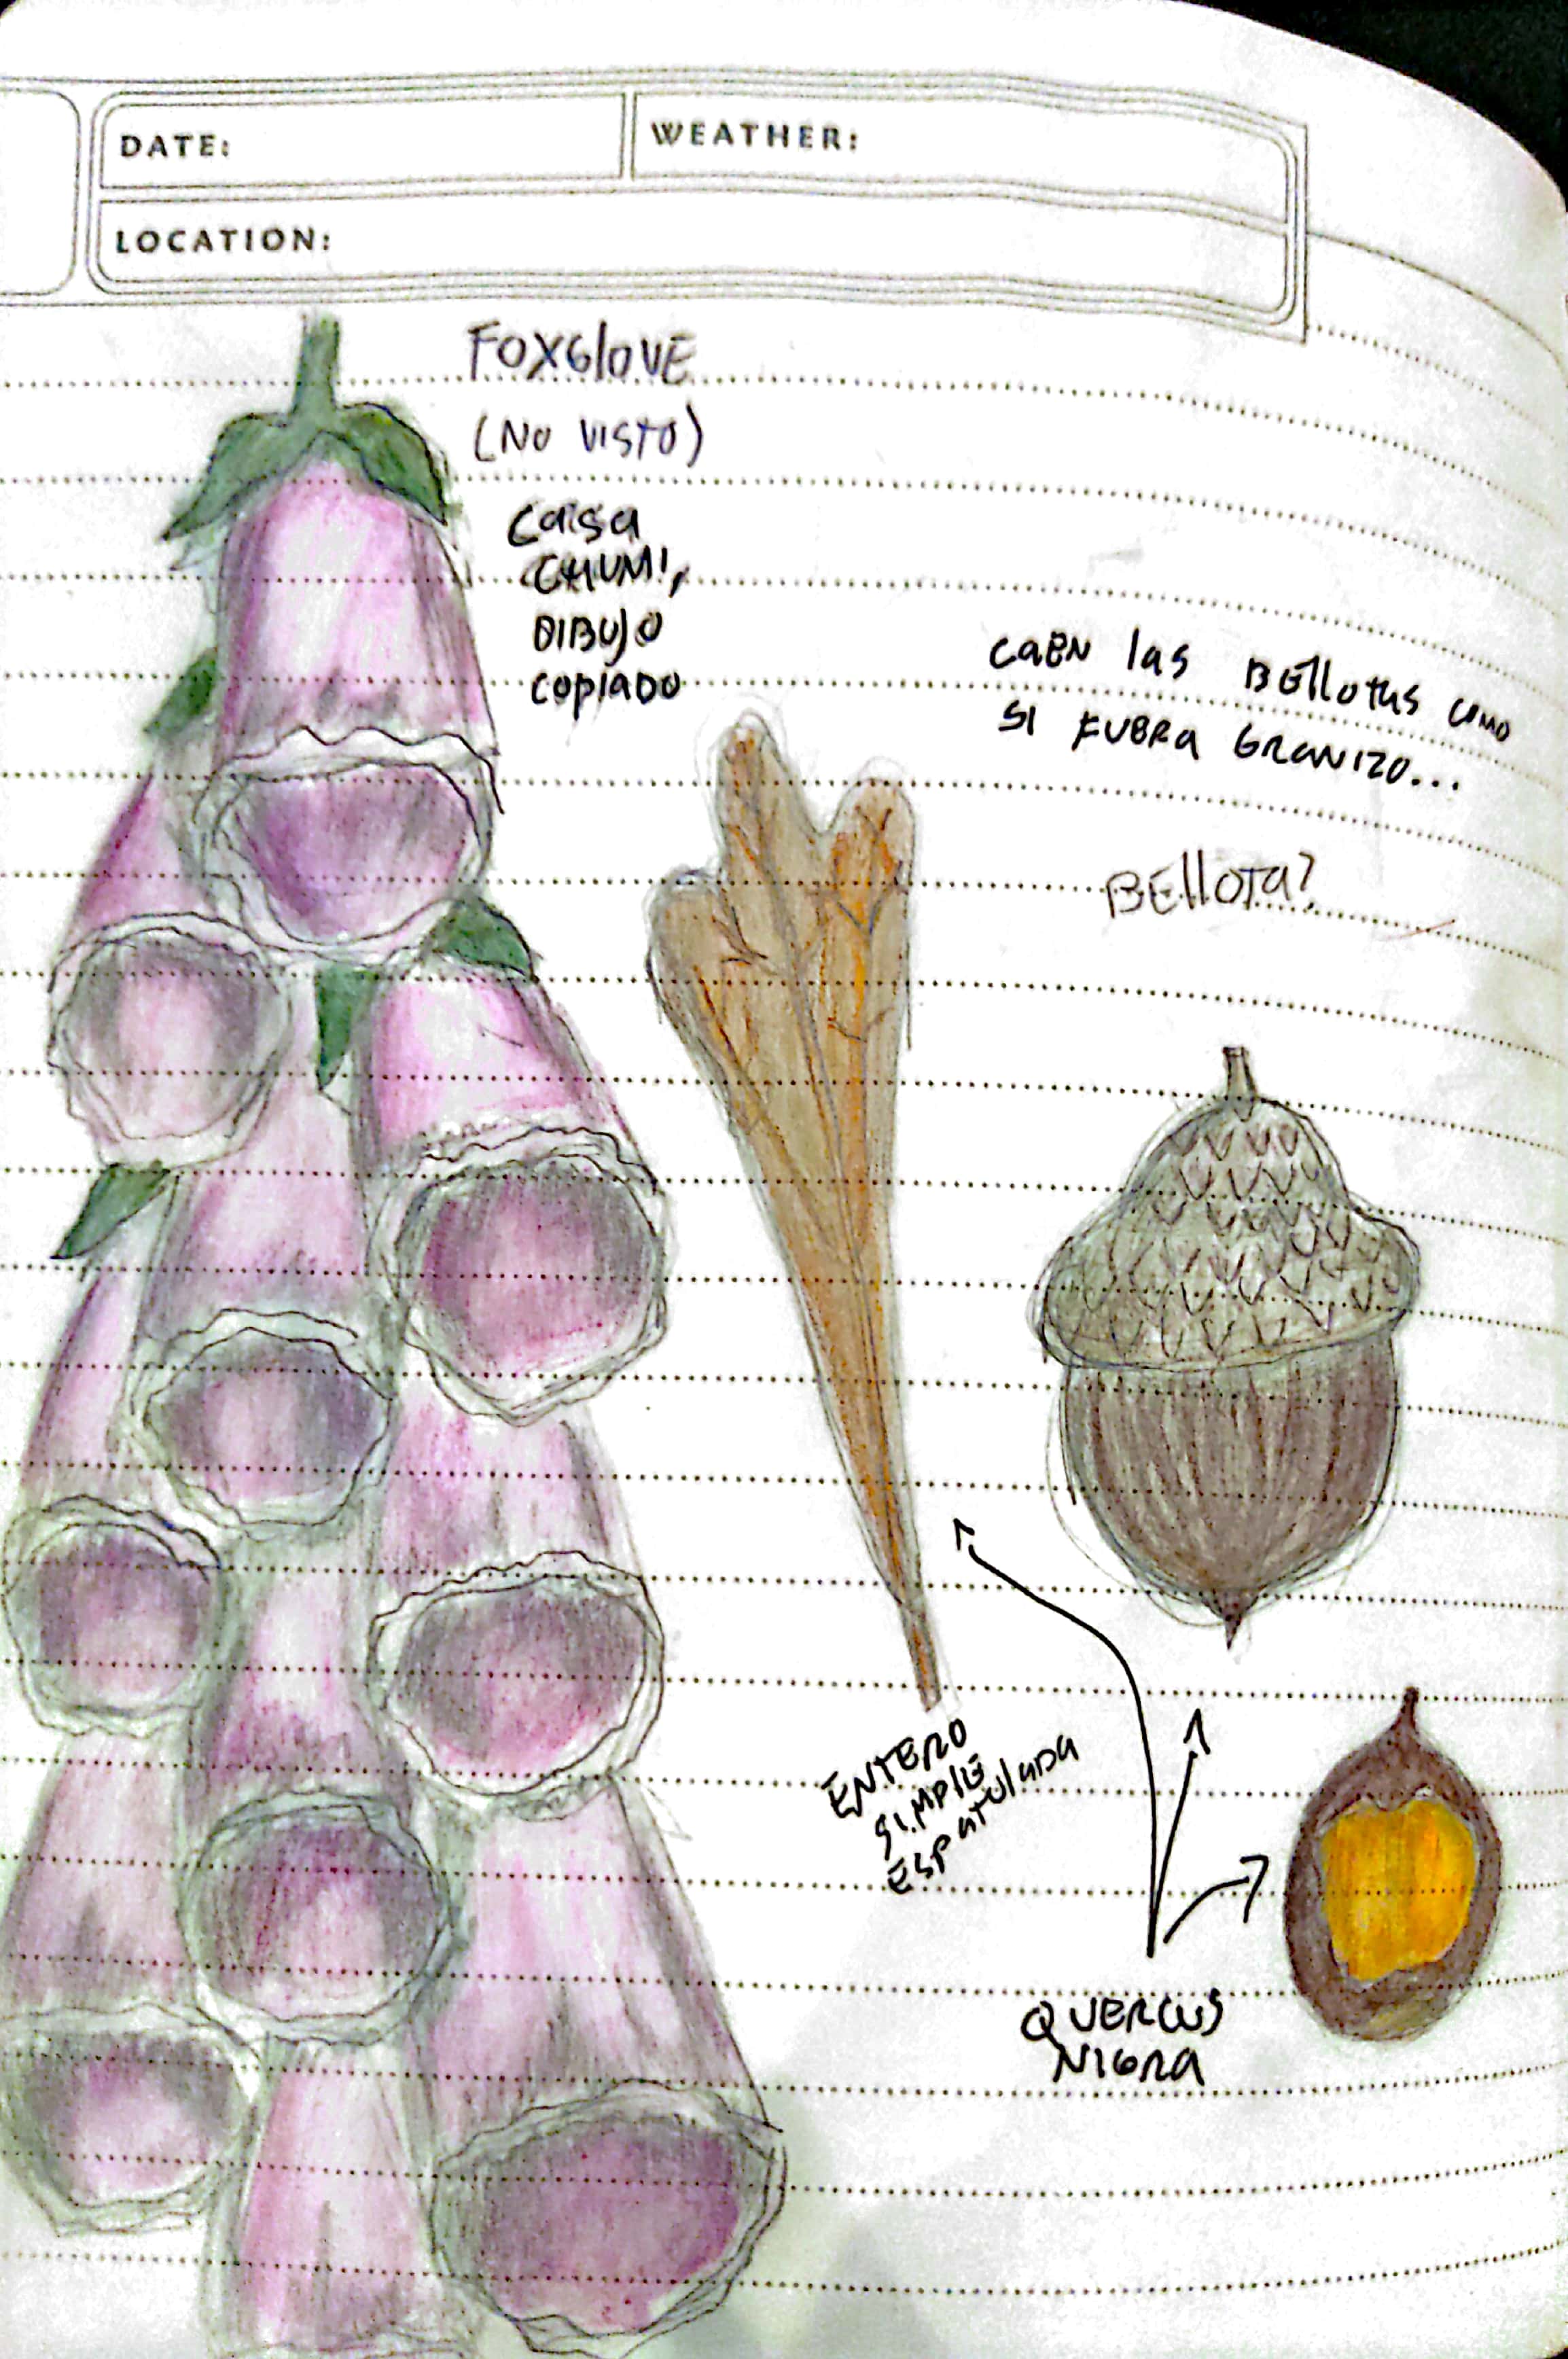 DATE:
WEATHER:
LOCATION:
FOXGlOVE
(NO VISTO)
Caisa
CHUMI,
DIBUJO
COPIADO
CAEN las BEllotas como
SI FUERA GRANIZO...
BEllOTA?
ENTERO
SIMPlE
ESPatulADA
QUERCUS
NIGRA